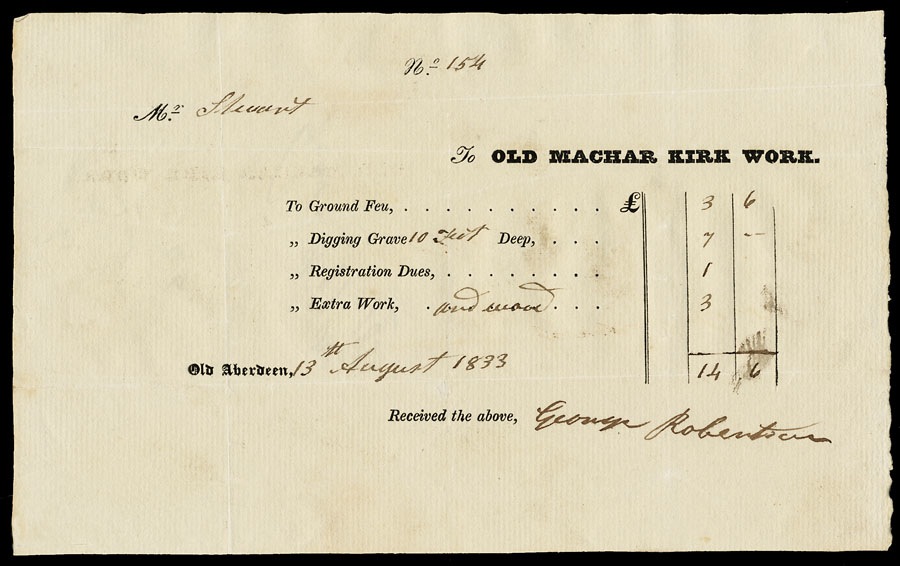 No. 154
Mr. Stewart
To OLD MACHAR KIRK WORK.
To Ground Feu, . . . . . . . . . . £ 3 6
„ Digging Grave 10 Feet Deep, . . . 7 -
„ Registration Dues, . . . . . . . . 1
„ Extra Work, . and wood . . . 3
Old Aberdeen, 13th August 1833 14 6
Received the above, George Robertson